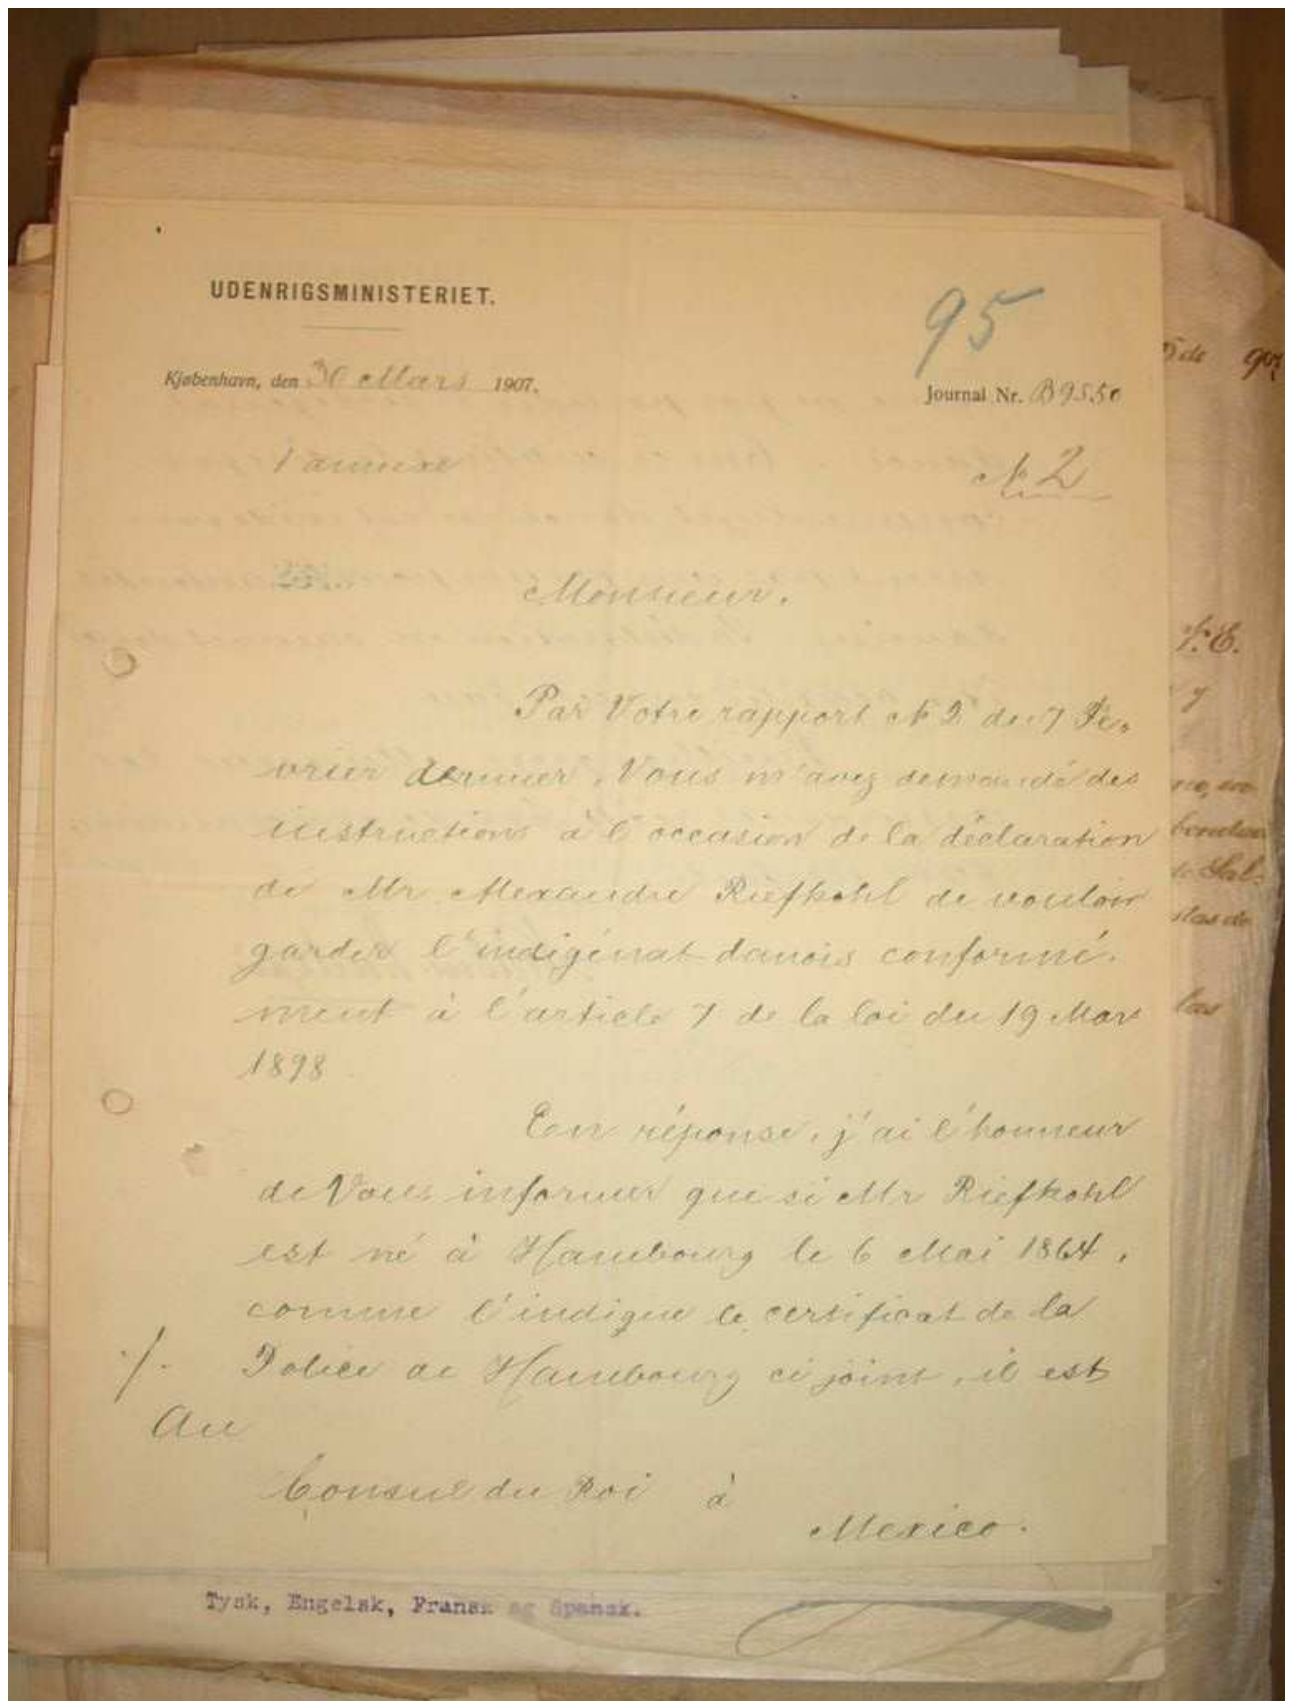 UDENRIGSMINISTERIET.
95
Kjøbenhavn, den 30 Mars 1907.
Journal Nr. B 9550
1 annexe
№ 2
Monsieur.
Par Votre rapport № 2 du 7 Fé-
vrier dernier, Vous m'avez demandé des
instructions à l'occasion de la déclaration
de Mr Alexandre Riefkohl de vouloir
garder l'indigénat danois conformé-
ment à l'article 7 de la loi du 19 Mars
1898
En réponse, j'ai l'honneur
de Vous informer que si Mr Riefkohl
est né à Hambourg le 6 Mai 1864,
comme l'indique le certificat de la
./. Police de Hambourg ci joint, il est
Au
Consul du Roi à
Mexico.
Tysk, Engelsk, Fransk og Spansk.
de
las